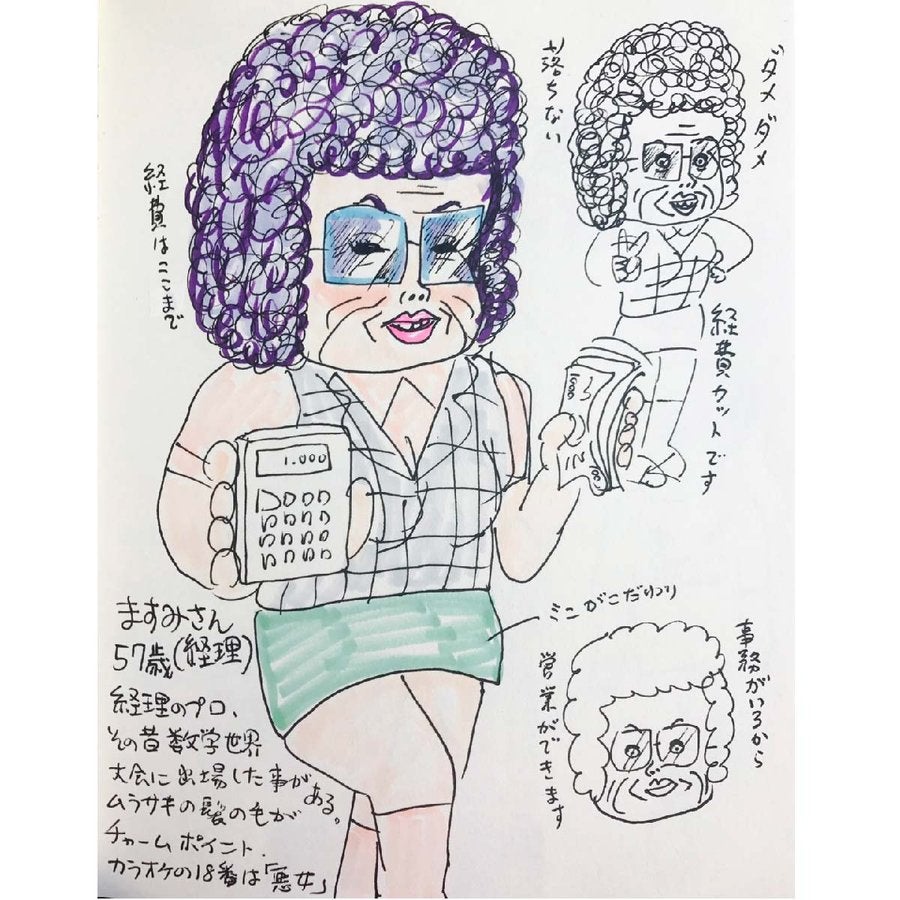 ダメダメ
落ちない
経費はここまで
1.000
1000
経費カットです
ミニがこだわり
ますみさん
57歳(経理)
経理のプロ、
その昔数学世界
大会に出場した事が
ある。
ムラサキの髪の毛が
チャームポイント.
カラオケの18番は「悪女」
事務がいるから
営業ができます